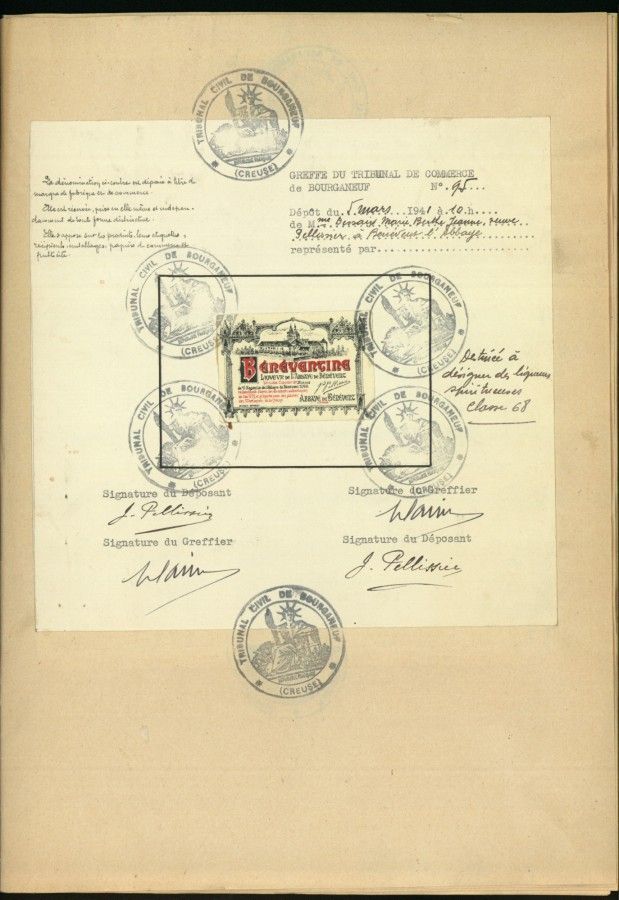 TRIBUNAL CIVIL DE BOURGANEUF
* (CREUSE) *
La dénomination ci-contre est déposée à titre de
marque de fabrique et de commerce.
Elle est réservée, prise en elle même et indépen-
damment de toute forme distinctive.
Elle s'appose sur les produits, leurs étiquettes,
récipients, emballages, papiers de commerce et
publicité.
GREFFE DU TRIBUNAL DE COMMERCE
de BOURGANEUF N° 95...
Dépôt du 5 mars ..1941 à 10.h....
de Mme Marie, Berthe, Jeanne, veuve
Pellissier à Bénévent l'Abbaye
représenté par
TRIBUNAL CIVIL DE BOURGANEUF
(CREUSE) *
TRIBUNAL CIVIL DE BOURGANEUF
* (CREUSE) *
BÉNÉVENTINE
LIQUEUR DE L'ABBAYE DE BÉNÉVENT
ABBAYE DE BÉNÉVENT
Destinée à
désigner des liqueurs
spiritueuses
Classe 68
TRIBUNAL CIVIL DE BOURGANEUF
(CREUSE)
TRIBUNAL CIVIL DE BOURGANEUF
(CREUSE) *
Signature du Déposant
J. Pellissier
Signature du Greffier
Signature du Greffier
Signature du Déposant
J. Pellissier
TRIBUNAL CIVIL DE BOURGANEUF
* (CREUSE) *